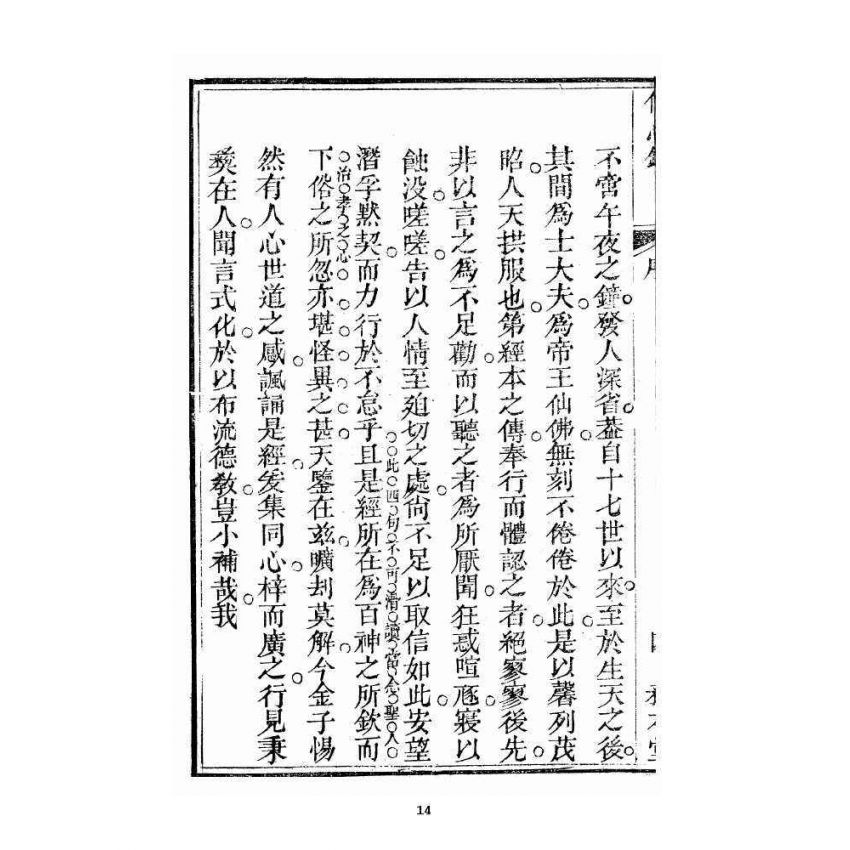 不啻午夜之鐘發人深省葢自十七世以來至於生天之後
其間爲士大夫爲帝王仙佛無刻不倦倦於此是以馨列茂
昭人天拱服也第經本之傳奉行而體認之者絕寥寥後先
非以言之爲不足勸而以聽之者爲所厭聞狂惑喧豗寢以
蝕没嗟嗟告以人情至廹切之處尙不足以取信如此安望
此四句不可滑讀當念聖人
治孝之心
潛孚默契而力行於不怠乎且是經所在爲百神之所欽而
下俗之所忽亦堪怪異之甚天鑒在玆曠刦莫解今金子惕
然有人心世道之感諷誦是經爰集同心梓而廣之行見秉
彜在人聞言式化於以布流德敎豈小補哉我
14